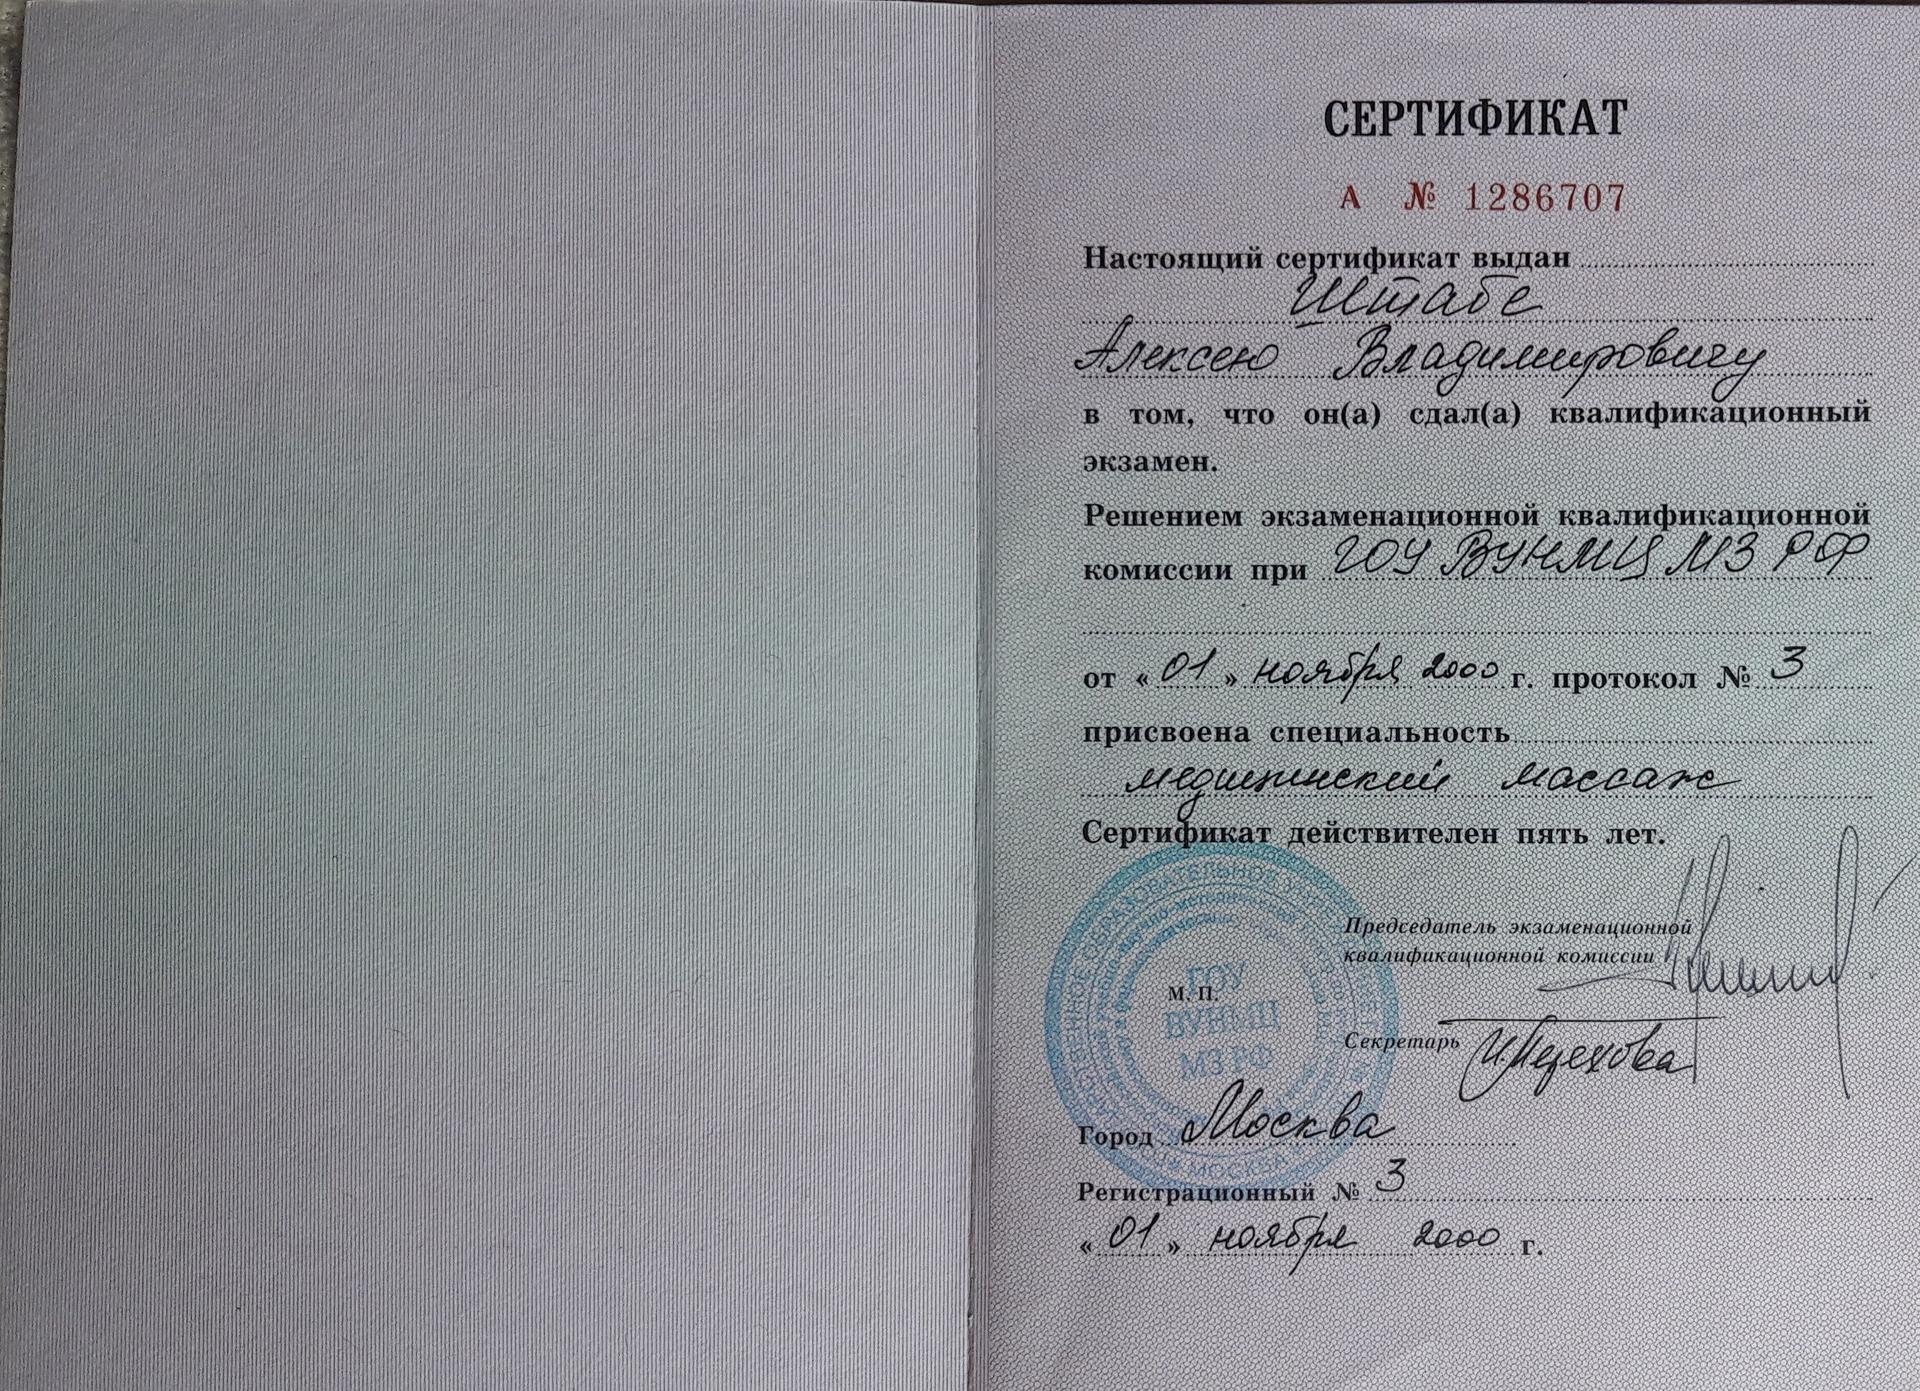 СЕРТИФИКАТ
А № 1286707
Настоящий сертификат выдан
Штабе
Алексею Владимировичу
в том, что он(а) сдал(а) квалификационный
экзамен.
Решением экзаменационной квалификационной
комиссии при ГОУ ВУНМЦ МЗ РФ
от «01» ноября 2000 г. протокол № 3
присвоена специальность
медицинский массаж
Сертификат действителен пять лет.
Председатель экзаменационной
квалификационной комиссии
М. П.
ГОУ
ВУНМЦ
МЗ РФ
Секретарь
Город Москва
Регистрационный № 3
«01» ноября 2000 г.